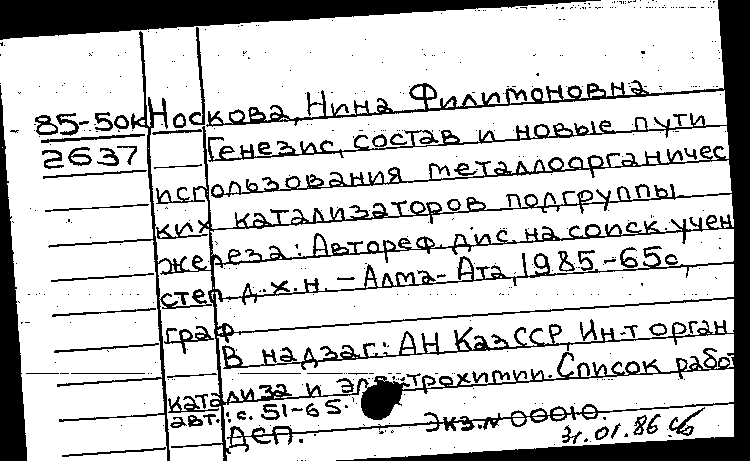 85-5ок Носкова, Нина Филимоновна
2637 Генезис, состав и новые пути
использования металлоорганичес
ких катализаторов подгруппы
железа: Автореф. дис. на соиск. учен
степ. д.х.н. – Алма-Ата, 1985.-65с,
граф.
В надзаг.: АН КазССР, Ин-т орган
катализа и электрохимии. Список работ
авт.: с. 51-65.
ДСП. Экз.№ 00010.
31.01.86